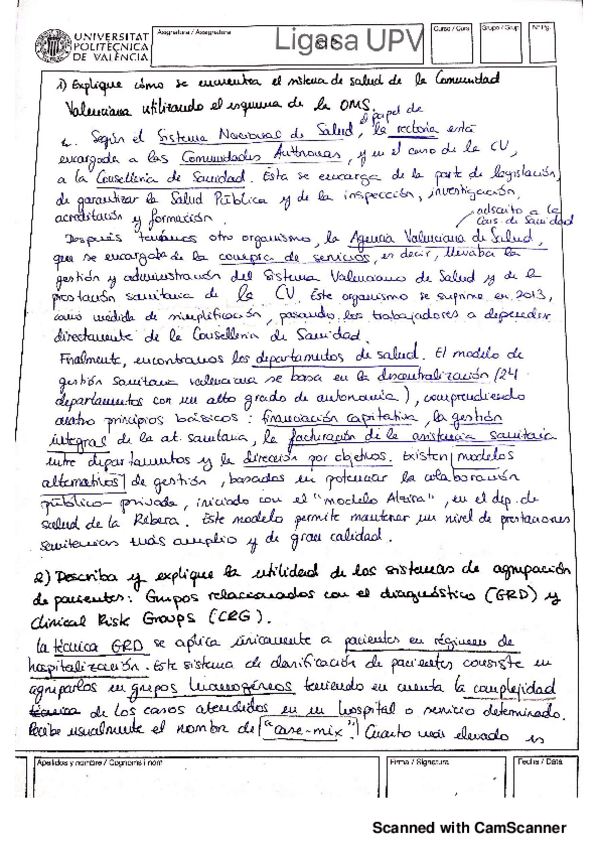 UNIVERSITAT
POLITÈCNICA
DE VALÈNCIA
Asignatura / Assignatura
Ligasa UPV
Curso / Curs
Grupo / Grup
Nº Pg.
1) Explique cómo se encuentra el sistema de salud de la Comunidad
Valenciana utilizando el esquema de la OMS.
el papel de
Según el Sistema Nacional de Salud, la rectoría está
encargada a las Comunidades Autónomas, y en el caso de la CV,
a la Conselleria de Sanidad. Esta se encarga de la parte de legislación,
de garantizar la Salud Pública y de la inspección, investigación,
acreditación y formación.
adscrito a la
Cons. de Sanidad
Después tenemos otro organismo, la Agencia Valenciana de Salud,
que se encargaba de la compra de servicios, es decir, llevaba la
gestión y administración del Sistema Valenciano de Salud y de la
prestación sanitaria de la CV. Este organismo se suprime en 2013,
como medida de simplificación, pasando los trabajadores a depender
directamente de la Conselleria de Sanidad.
Finalmente, encontramos los departamentos de salud. El modelo de
gestión sanitaria valenciana se basa en la descentralización (24
departamentos con un alto grado de autonomía), comprendiendo
cuatro principios básicos: financiación capitativa, la gestión
integral de la at. sanitaria, la facturación de la asistencia sanitaria
entre departamentos y la dirección por objetivos. Existen modelos
alternativos de gestión, basados en potenciar la colaboración
público-privada, iniciado con el "modelo Alzira", en el dep. de
salud de la Ribera. Este modelo permite mantener un nivel de prestaciones
sanitarias más amplio y de gran calidad.
2) Describa y explique la utilidad de los sistemas de agrupación
de pacientes: Grupos relacionados con el diagnóstico (GRD) y
Clinical Risk Groups (CRG).
La técnica GRD se aplica únicamente a pacientes en régimen de
hospitalización. Este sistema de clasificación de pacientes consiste en
agruparlos en grupos homogéneos teniendo en cuenta la complejidad
técnica de los casos atendidos en un hospital o servicio determinado.
Recibe usualmente el nombre de "case-mix". Cuanto más elevado es
Apellidos y nombre / Cognoms i nom
Firma / Signatura
Fecha / Data
Scanned with CamScanner